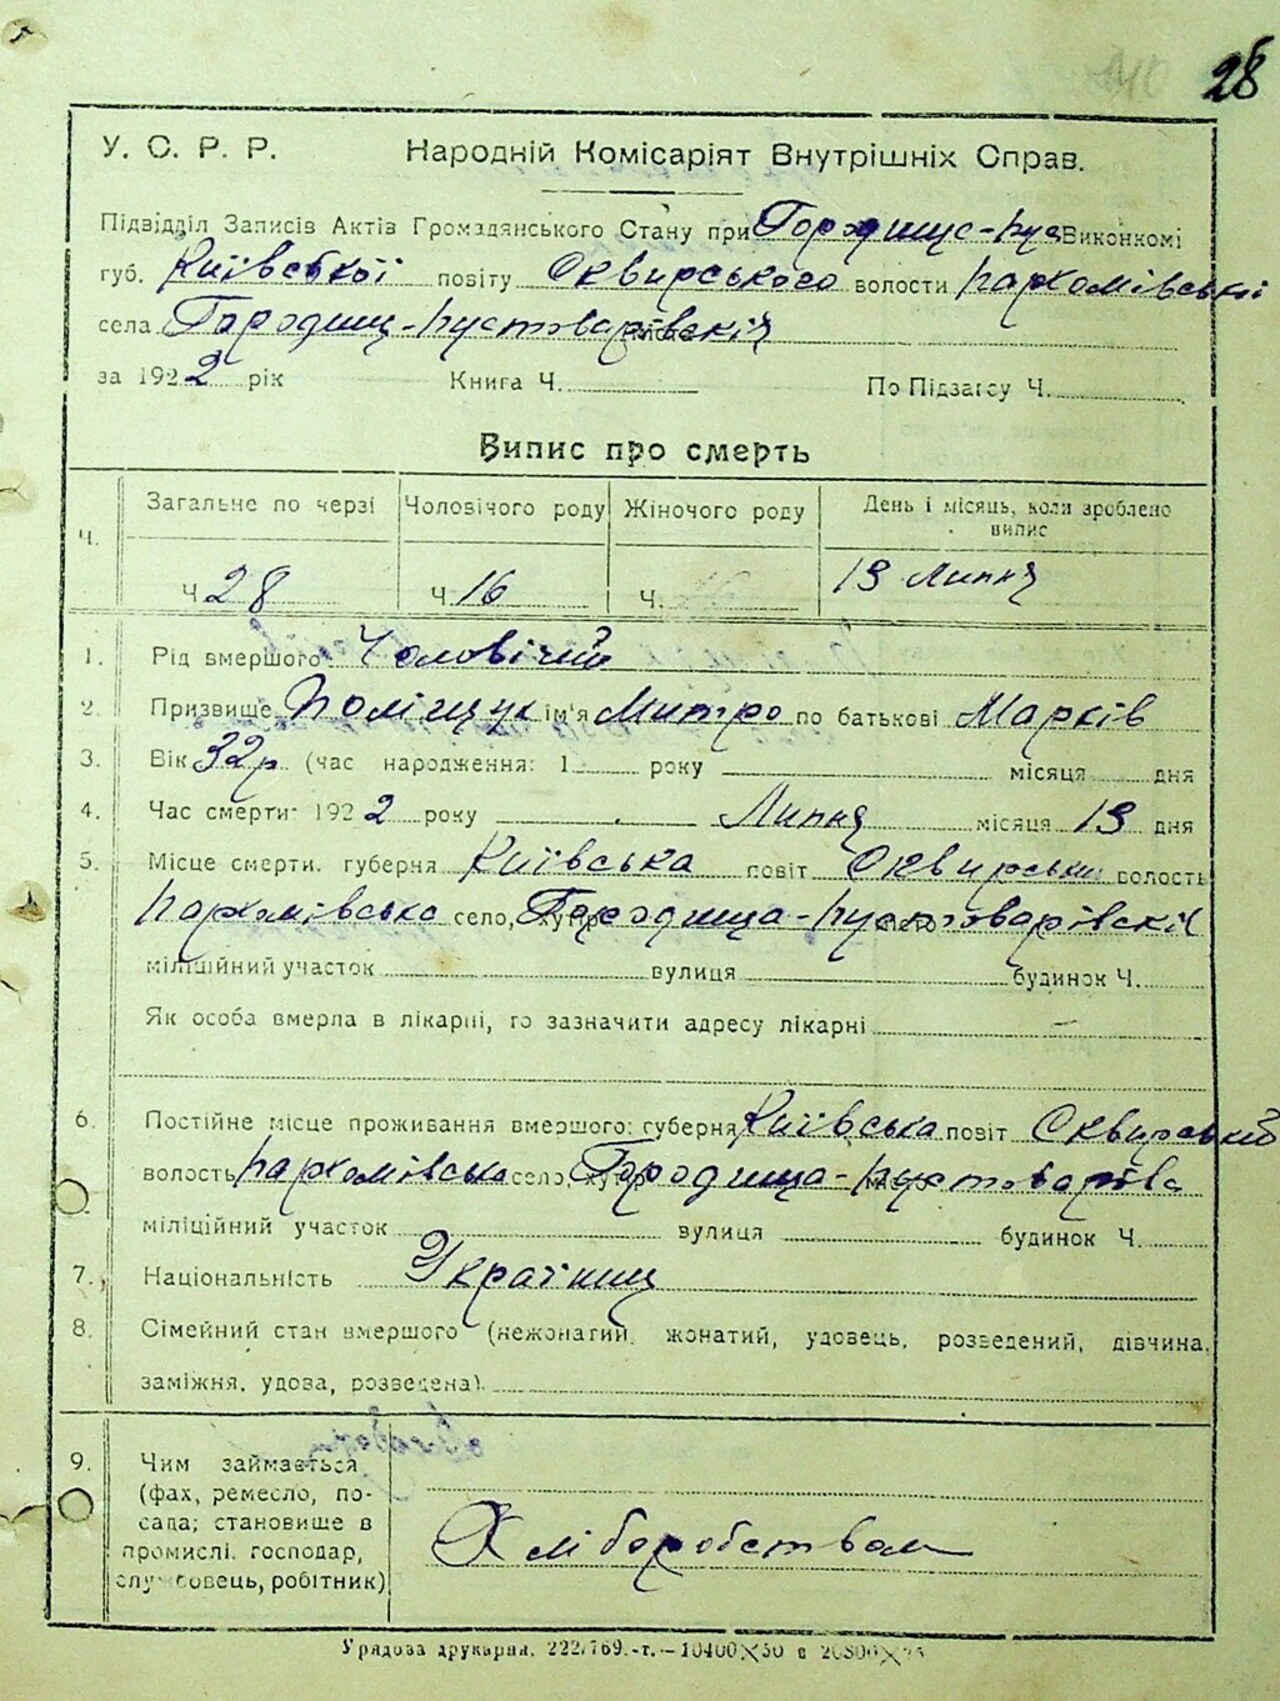 28
У. С. Р. Р. Народній Комісаріят Внутрішніх Справ.
Підвідділ Записів Актів Громадянського Стану при Городище-Пус Виконкомі
губ. Київської повіту Сквирського волости Пархомівської
села Городищ-Пустоварівскій
за 1922 рік Книга Ч. По Підзагсу Ч.
Випис про смерть
Ч. Загальне по черзі Чоловічого роду Жіночого роду День і місяць, коли зроблено
випис
Ч 28 Ч 16 Ч. 13 Липня
1. Рід вмершого Чоловічий
2. Призвище Поліщук ім'я Митро по батькові Марків
3. Вік 32р (час народження: 1 року місяця дня
4. Час смерти: 1922 року Липня місяця 13 дня
5. Місце смерти. губерня Київська повіт Сквирський волость
Пархомівська село, хутір Городища-Пустоварівскій
міліційний участок вулиця будинок Ч.
Як особа вмерла в лікарні, то зазначити адресу лікарні –
6. Постійне місце проживання вмершого: губерня Київська повіт Сквирський
волость Пархомівська село, хутір Городища-Пустоварівка
міліційний участок вулиця будинок Ч.
7. Національність Українец
8. Сімейний стан вмершого (нежонатий, жонатий, удовець, розведений, дівчина,
заміжня, удова, розведена).
9. Чим займається
(фах, ремесло, по-
сада; становище в
промислі. господар,
службовець, робітник)
Хліборобством
Урядова друкарня. 222/769.-т.-10400